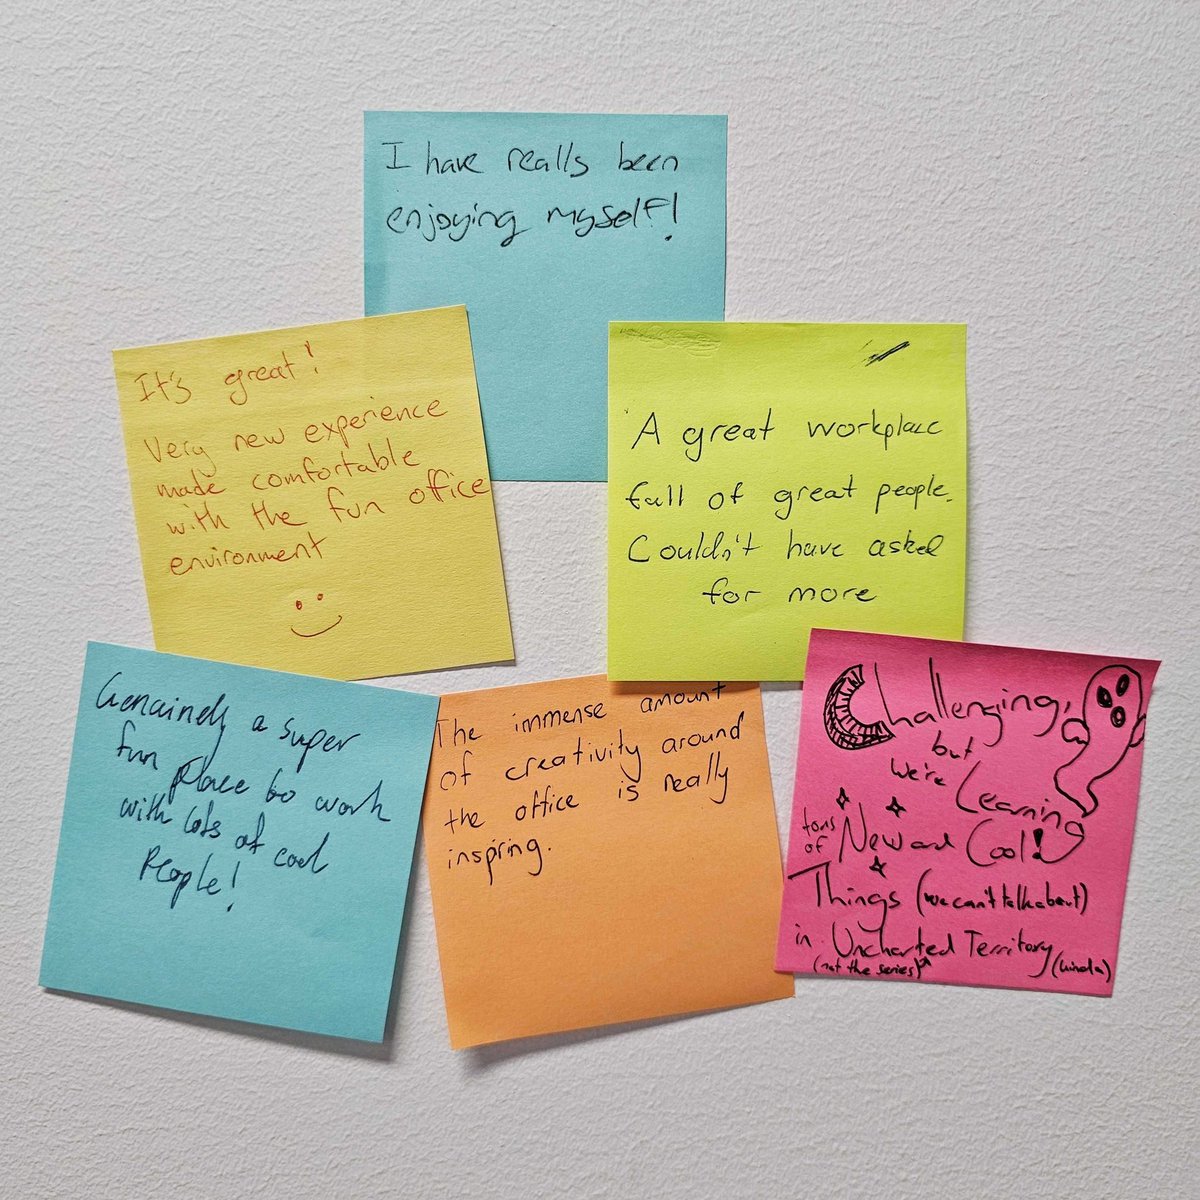 I have really been
enjoying myself!
It's great!
Very new experience
made comfortable
with the fun office
environment
A great workplace
full of great people.
Couldn't have asked
for more
Genuinely a super
fun place to work
with lots of cool
People!
The immense amount
of creativity around
the office is really
inspring.
Challenging,
but
we're Learning
tons
of New and Cool!
Things (we can't talk about)
in Uncharted Territory (kinda)
(not the series)